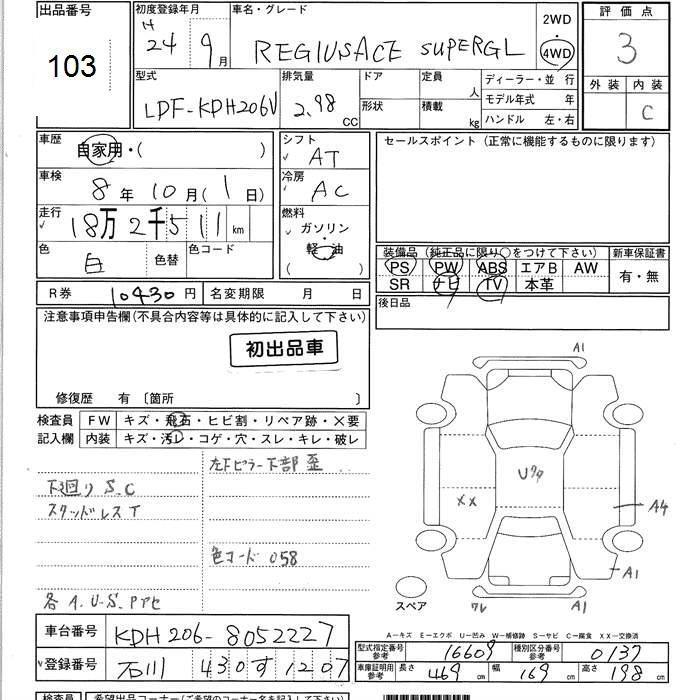 出品番号
103
初度登録年月
H
24 9月
車名・グレード
REGIUSACE SUPERGL
2WD
4WD
評価点
3
外装 内装
C
型式
LDF-KDH206V
排気量
2.98 CC
ドア
形状
定員 人
積載 kg
ディーラー・並行
モデル年式 年
ハンドル 左・右
車歴
自家用・( )
シフト
AT
セールスポイント (正常に機能するものに限ります)
車検
8年10月(1日)
冷房
AC
走行
18万2千511km
燃料
ガソリン
・
軽油
( )
色
白
色替
色コード
装備品 (純正品に限り○をつけて下さい)
新車保証書
PS PW ABS エアB AW
SR ナビ TV 本革
有・無
R券 10430円
名変期限 月 日
後日品
注意事項申告欄(不具合内容等は具体的に記入して下さい)
初出品車
修復歴 有 〔箇所 〕
検査員
記入欄
FW キズ・飛石・ヒビ割・リペア跡・×要
内装 キズ・汚レ・コゲ・穴・スレ・キレ・破レ
左下ピラー下部歪
下廻り S.C
スタッドレスT
色コード 058
各A.U.S.Pアセ
A1
XX
A4
A1
A1
スペア
A―キズ E―エクボ U―凹み W―補修跡 S―サビ C―腐食 XX―交換済
車台番号 KDH206-8052227
登録番号 石川 430す1207
型式指定番号
参考
16609
種別区分番号
参考
0137
車庫証明用
参考
長さ 469cm 幅 169cm 高さ 198cm
検査員
希望出品コーナー(ご希望のコーナー名を記入下さい)